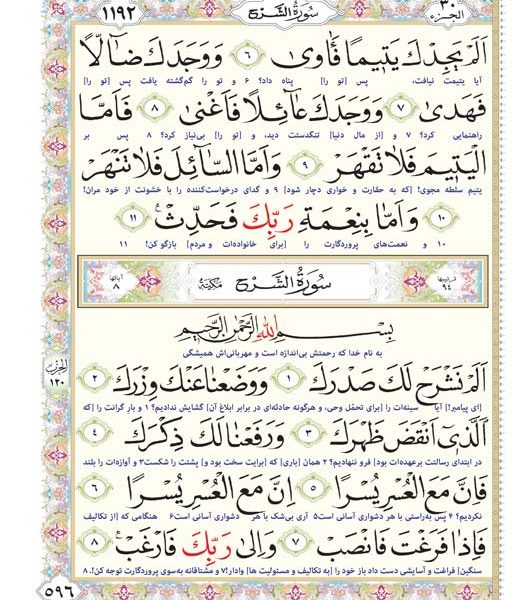 ۳۰
الجزء
سورة الشرح
۱۱۹۲
اَلَمْ يَجِدْكَ يَتيمًا فَـٔاوى ۶ وَ وَجَدَكَ ضآلًّا
آیا یتیمت نیافت، پس [تو را] پناه داد؟ ۶ و تو را گم‌گشته یافت پس [تو را]
فَهَدى ۷ وَ وَجَدَكَ عآئِلًا فَاَغْنى ۸ فَاَمَّا
راهنمایی کرد؟ ۷ و [از مال دنیا] تنگدستت دید، و [تو را] بی‌نیاز کرد؟ ۸ پس بر
الْيَتيمَ فَلا تَقْهَرْ ۹ وَ اَمَّا السّآئِلَ فَلا تَنْهَرْ
یتیم سلطه مجوی! [که به حقارت و خواری دچار شود] ۹ و گدای درخواست‌کننده را با خشونت از خود مران!
۱۰ وَ اَمّا بِنِعْمَةِ رَبِّكَ فَحَدِّثْ ۱۱
۱۰ و نعمت‌های پروردگارت را [برای خانواده‌ات و مردم] بازگو کن! ۱۱
ترتیبها
۹۴
سورة الشرح
مکیّة
آیاتها
۸
بِسْمِ اللهِ الرَّحْمٰنِ الرَّحيمِ
به نام خدا که رحمتش بی‌اندازه است و مهربانی‌اش همیشگی
اَلَمْ نَشْرَحْ لَكَ صَدْرَكَ ۱ وَ وَضَعْنا عَنْكَ وِزْرَكَ ۲
[ای پیامبر!] آیا سینه‌ات را [برای تحمّل وحی، و هرگونه حادثه‌ای در برابر ابلاغ آن] گشایش ندادیم؟ ۱ و بارِ گرانت را [که
الحزب
۱۲۰
اَلَّذي اَنْقَضَ ظَهْرَكَ ۳ وَ رَفَعْنا لَكَ ذِكْرَكَ ۴
در ابتدای رسالتت برعهده‌ات بود] فرو ننهادیم؟ ۲ همان [باری] که [برایت سخت بود و] پشتت را شکست ۳ و آوازه‌ات را بلند
فَاِنَّ مَعَ الْعُسْرِ يُسْرًا ۵ اِنَّ مَعَ الْعُسْرِ يُسْرًا ۶
نکردیم؟ ۴ پس به‌راستی با هر دشواری آسانی است ۵ آری بی‌شک با هر دشواری آسانی است ۶ هنگامی که [از تکالیف
فَاِذا فَرَغْتَ فَانْصَبْ ۷ وَ اِلى رَبِّكَ فَارْغَبْ ۸
سنگین] فراغت و آسایشی دست داد باز خود را [به تکالیف و مسئولیت ها] وادار! ۷ و مشتاقانه به‌سوی پروردگارت توجه کن!. ۸
۵۹۶